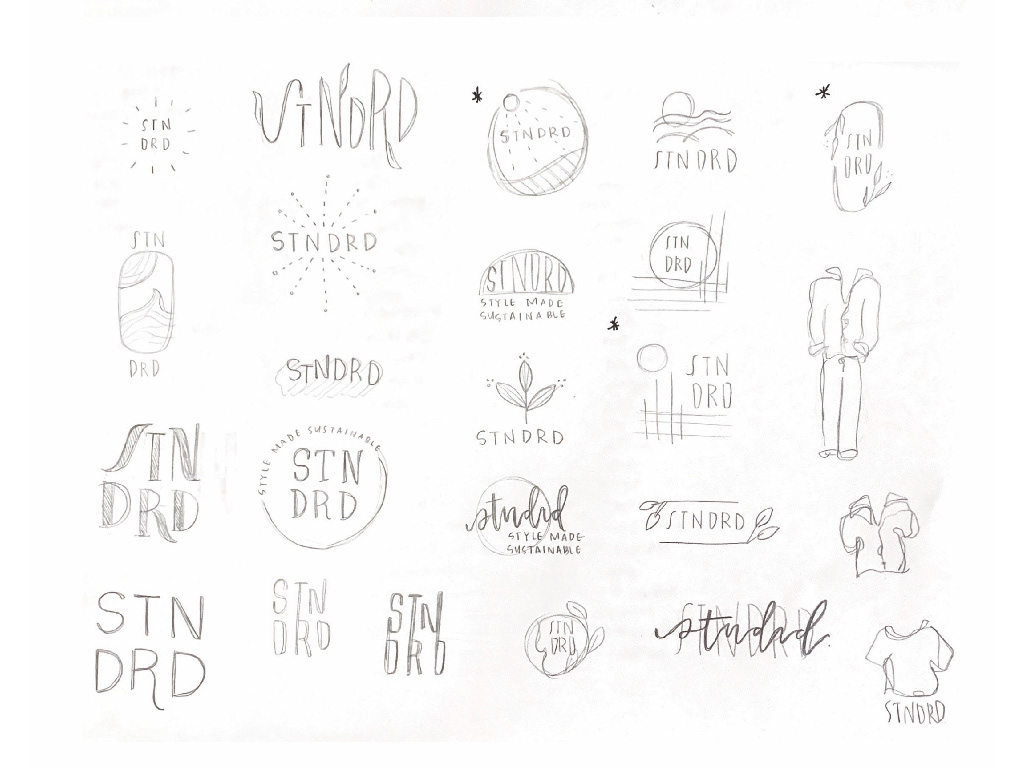 STN
DRD
STNDRD
STNDRD
STNDRD
STN
DRD
STN
DRD
STNDRD
STNDRD
STYLE MADE
SUSTAINABLE
STN
DRD
STNDRD
STN
DRD
STNDRD
STN
DRD
STYLE MADE SUSTAINABLE
STN
DRD
stndrd
STYLE MADE
SUSTAINABLE
STNDRD
STN
DRD
STN
DRD
STN
DRD
STN
DRD
STNDRD
stndrd
STNDRD